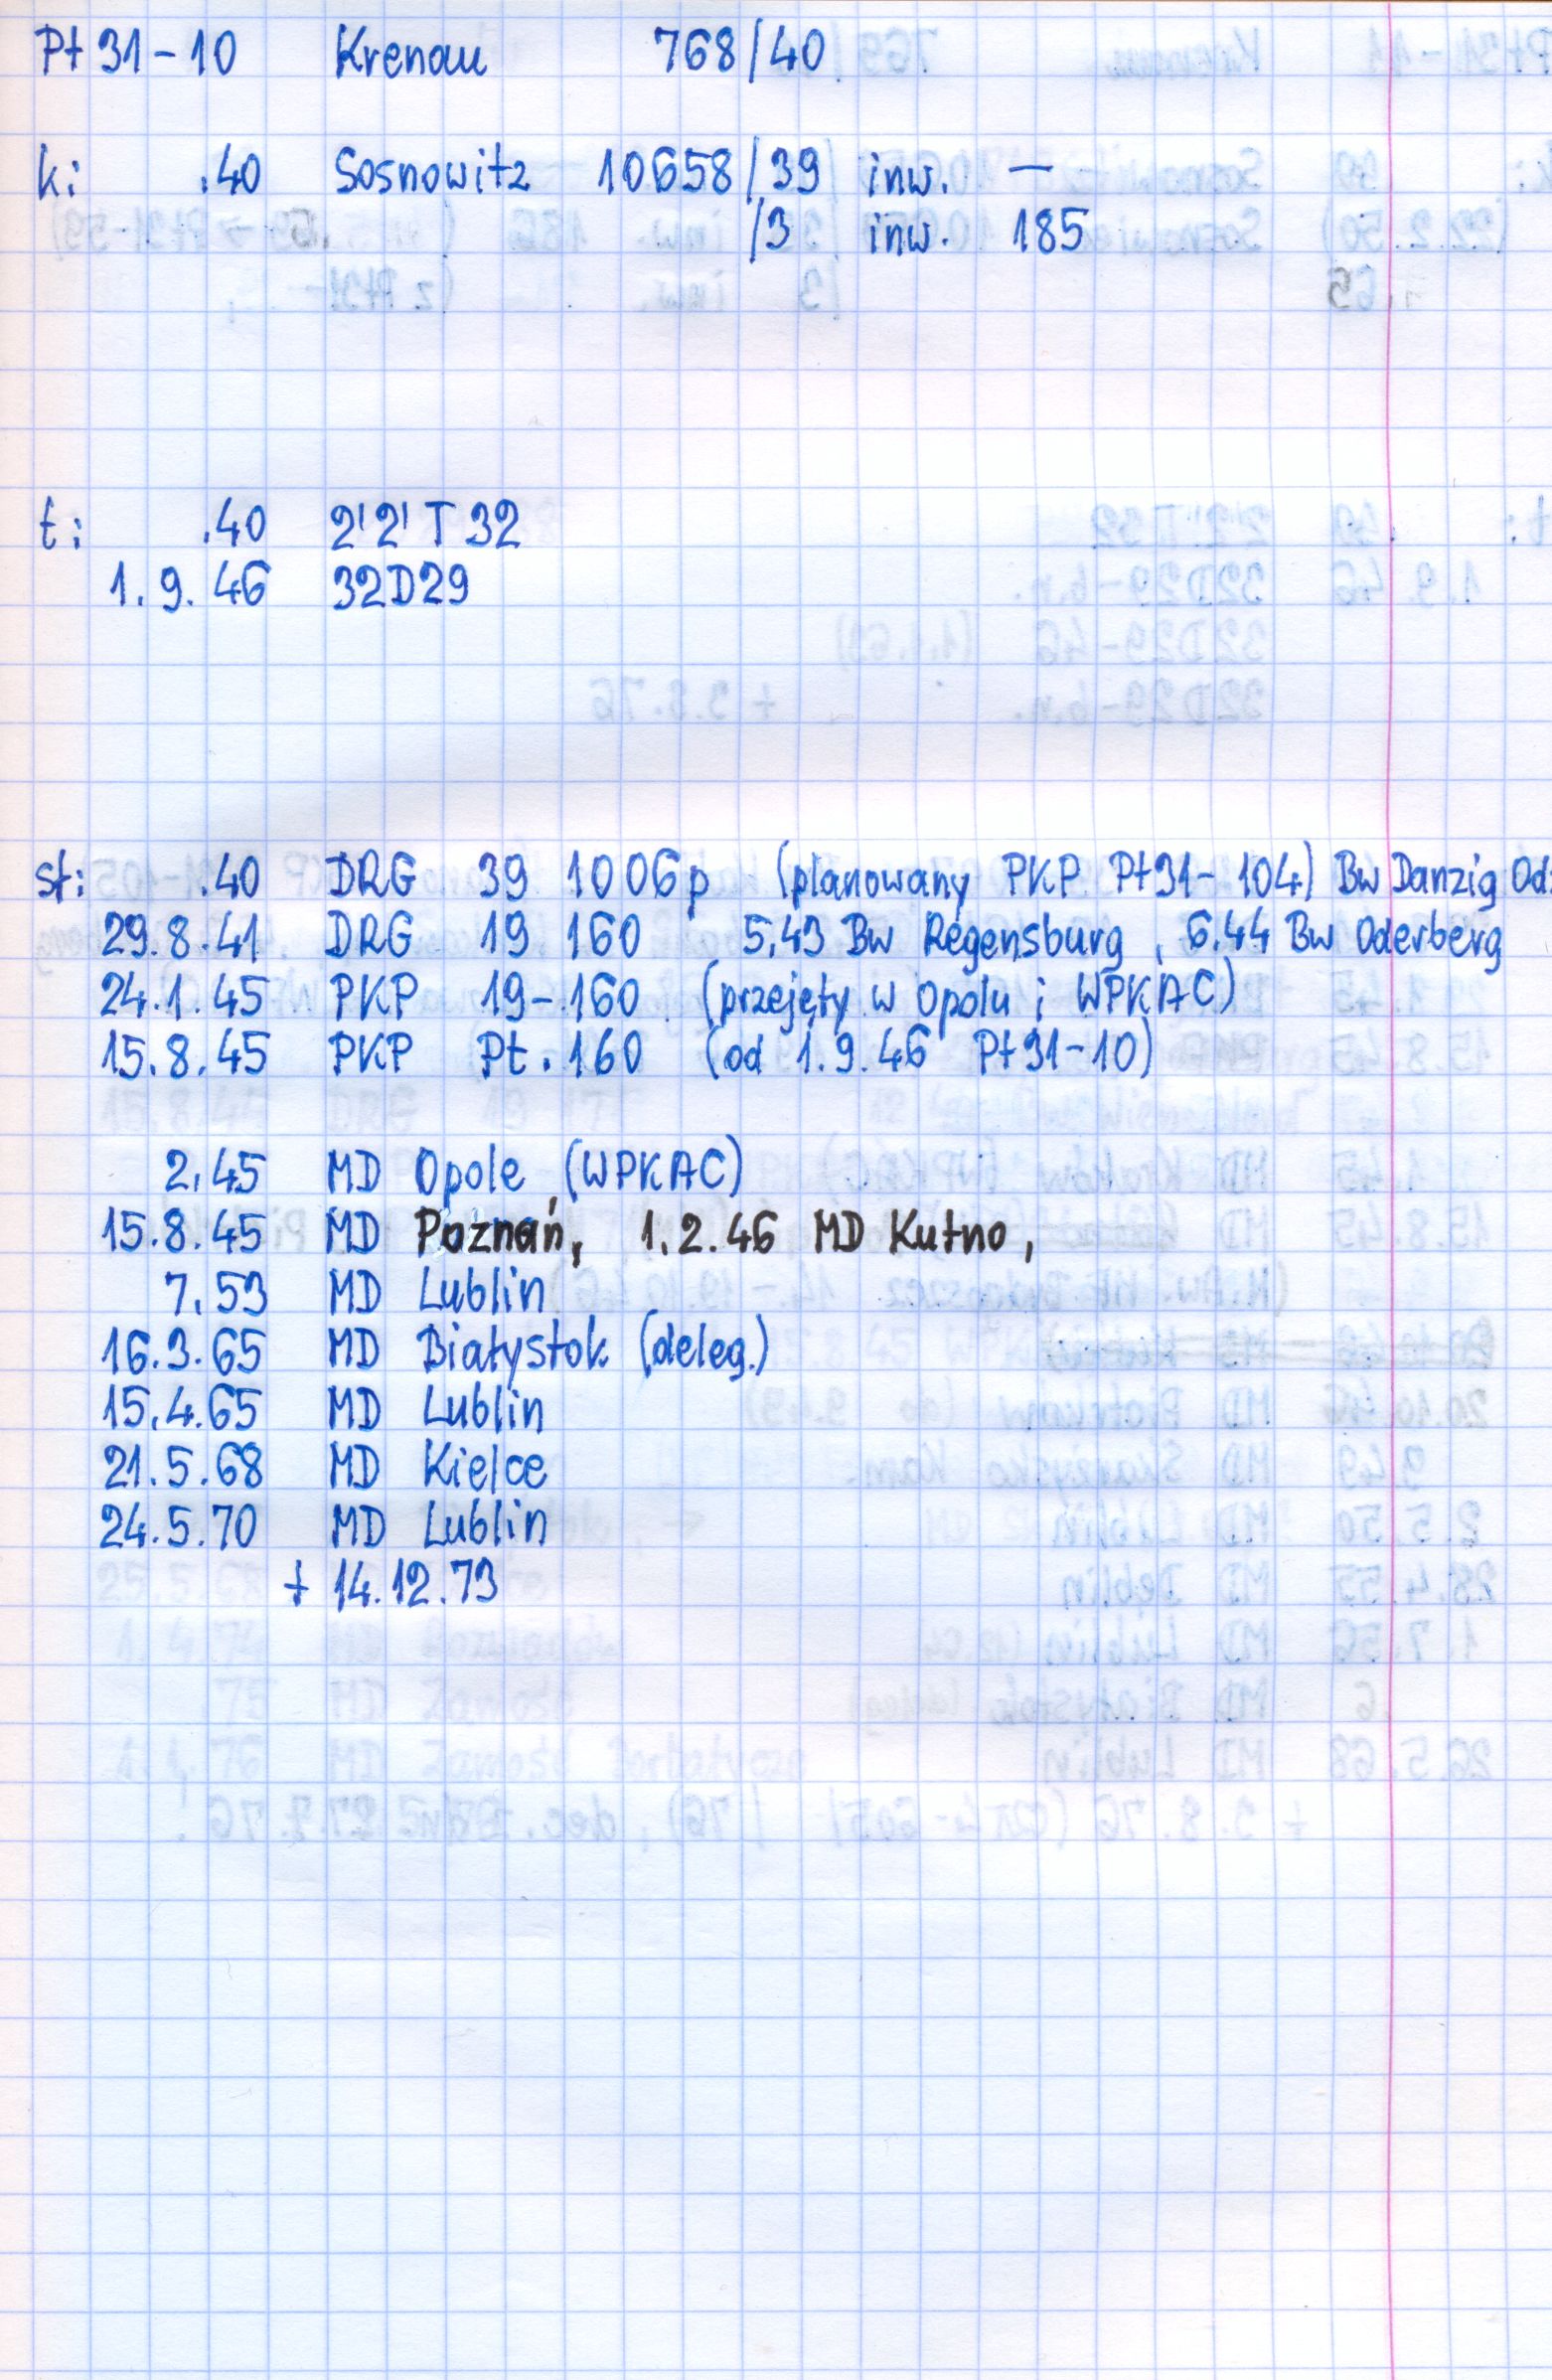 Pt 31-10 Krenau 768/40
k: .40 Sosnowitz 10658/39 inw. —
/3 inw. 185
t: .40 2'2' T 32
1.9.46 32D29
st: .40 DRG 39 1006p (planowany PKP Pt31-104) Bw Danzig Od:
29.8.41 DRG 19 160 5.43 Bw Regensburg, 6.44 Bw Oderberg
24.1.45 PKP 19-160 (przejęty w Opolu i WPKAC)
15.8.45 PKP Pt.160 (od 1.9.46 Pt31-10)
2.45 MD Opole (WPKAC)
15.8.45 MD Poznań, 1.2.46 MD Kutno,
7.53 MD Lublin
16.3.65 MD Białystok (deleg.)
15.4.65 MD Lublin
21.5.68 MD Kielce
24.5.70 MD Lublin
+ 14.12.73